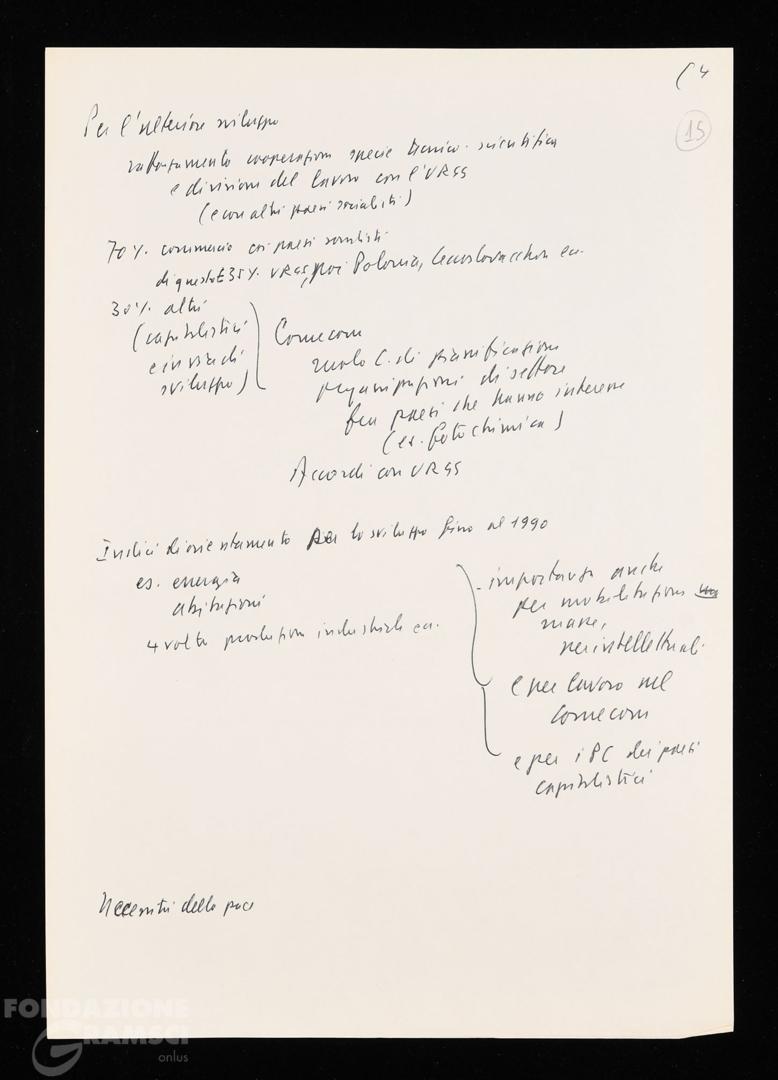 (4
15
Per l'ulteriore sviluppo
raffortamento cooperazione specie tecnico-scientifica
e divisione del lavoro con l'URSS
(e con altri paesi socialisti)
70% commercio coi paesi socialisti
di questo 35% URSS, poi Polonia, Cecoslovacchia ecc.
30% altri
(capitalistici
e in via di
sviluppo)
Comecom
ruolo C. di pianificazione
organizzazioni di settore
fra paesi che hanno interesse
(es. fotochimica)
Accordi con URSS
Indici di orientamento per lo sviluppo fino al 1990
es. energia
abitazioni
4 volte produzione industriale ecc.
- importanza anche
per mobilitazione
masse,
per intellettuali
e per lavoro nel
Comecom
e per i PC dei paesi
capitalistici
Necessità della pace
FONDAZIONE
GRAMSCI
onlus